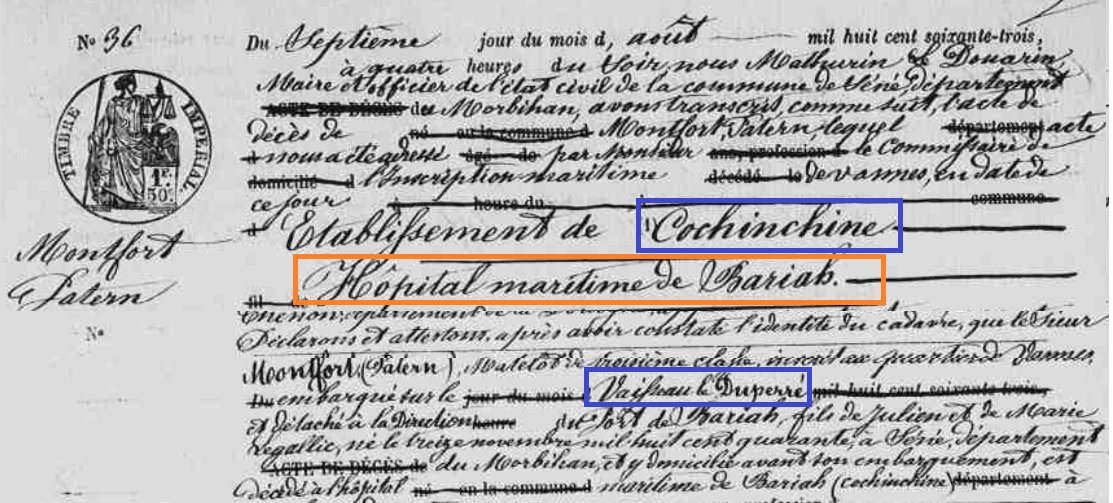 No 36
Du Septième jour du mois d, août mil huit cent soixante-trois,
à quatre heures du Soir, nous Mathurin Le Douarin,
Maire et officier de l'état civil de la commune de Séné, département
ACTE DE DÉCÈS de du Morbihan, avons transcrit, comme suit, l'acte de
décès de né en la commune d Montfort, Patern, lequel département acte
à nous a été adressé âgé de par Monsieur ans, profession d le Commissaire de
domicilié d l'Inscription maritime décédé le de vannes, en date de
ce jour à heure du commune
d Etablissement de Cochinchine
Hôpital maritime de Bariah.
fil
TIMBRE IMPERIAL
1F. 50c.
Montfort
Patern
No
Déclarons et attestons, après avoir constaté l'identité du cadavre, que le Sieur
Montfort (Patern), Matelot de troisième classe, inscrit au quartier de Vannes,
Du embarqué sur le jour du mois d Vaisseau le Duperré mil huit cent soixante-trois,
et détaché à la Direction heure du fort de Bariah, fils de Julien et de Marie
Legallic, né le treize novembre mil huit cent quarante, à Séné, département
ACTE DE DÉCÈS de du Morbihan, et y domicilié avant son embarquement, est
décédé à l'hôpital né en la commune d maritime de Bariah (cochinchine) département à